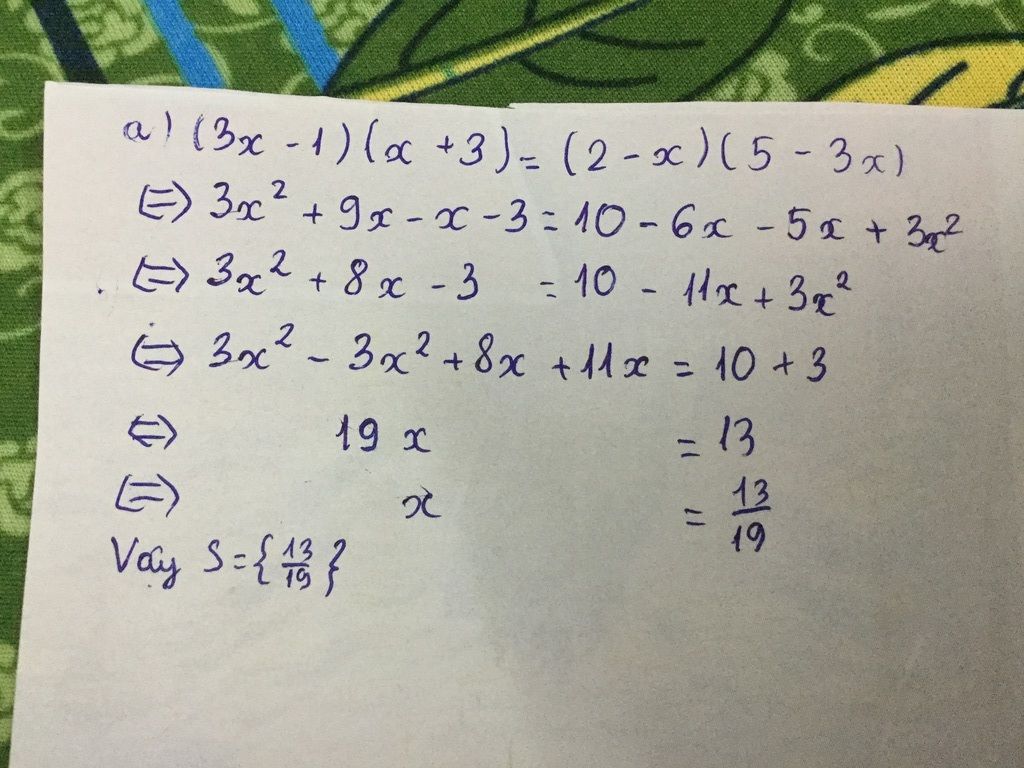 a) (3x - 1)(x + 3) = (2 - x)(5 - 3x)
⇔ 3x² + 9x - x - 3 = 10 - 6x - 5x + 3x²
⇔ 3x² + 8x - 3 = 10 - 11x + 3x²
⇔ 3x² - 3x² + 8x + 11x = 10 + 3
⇔ 19x = 13
⇔ x = 13/19
Vậy S = {13/19}